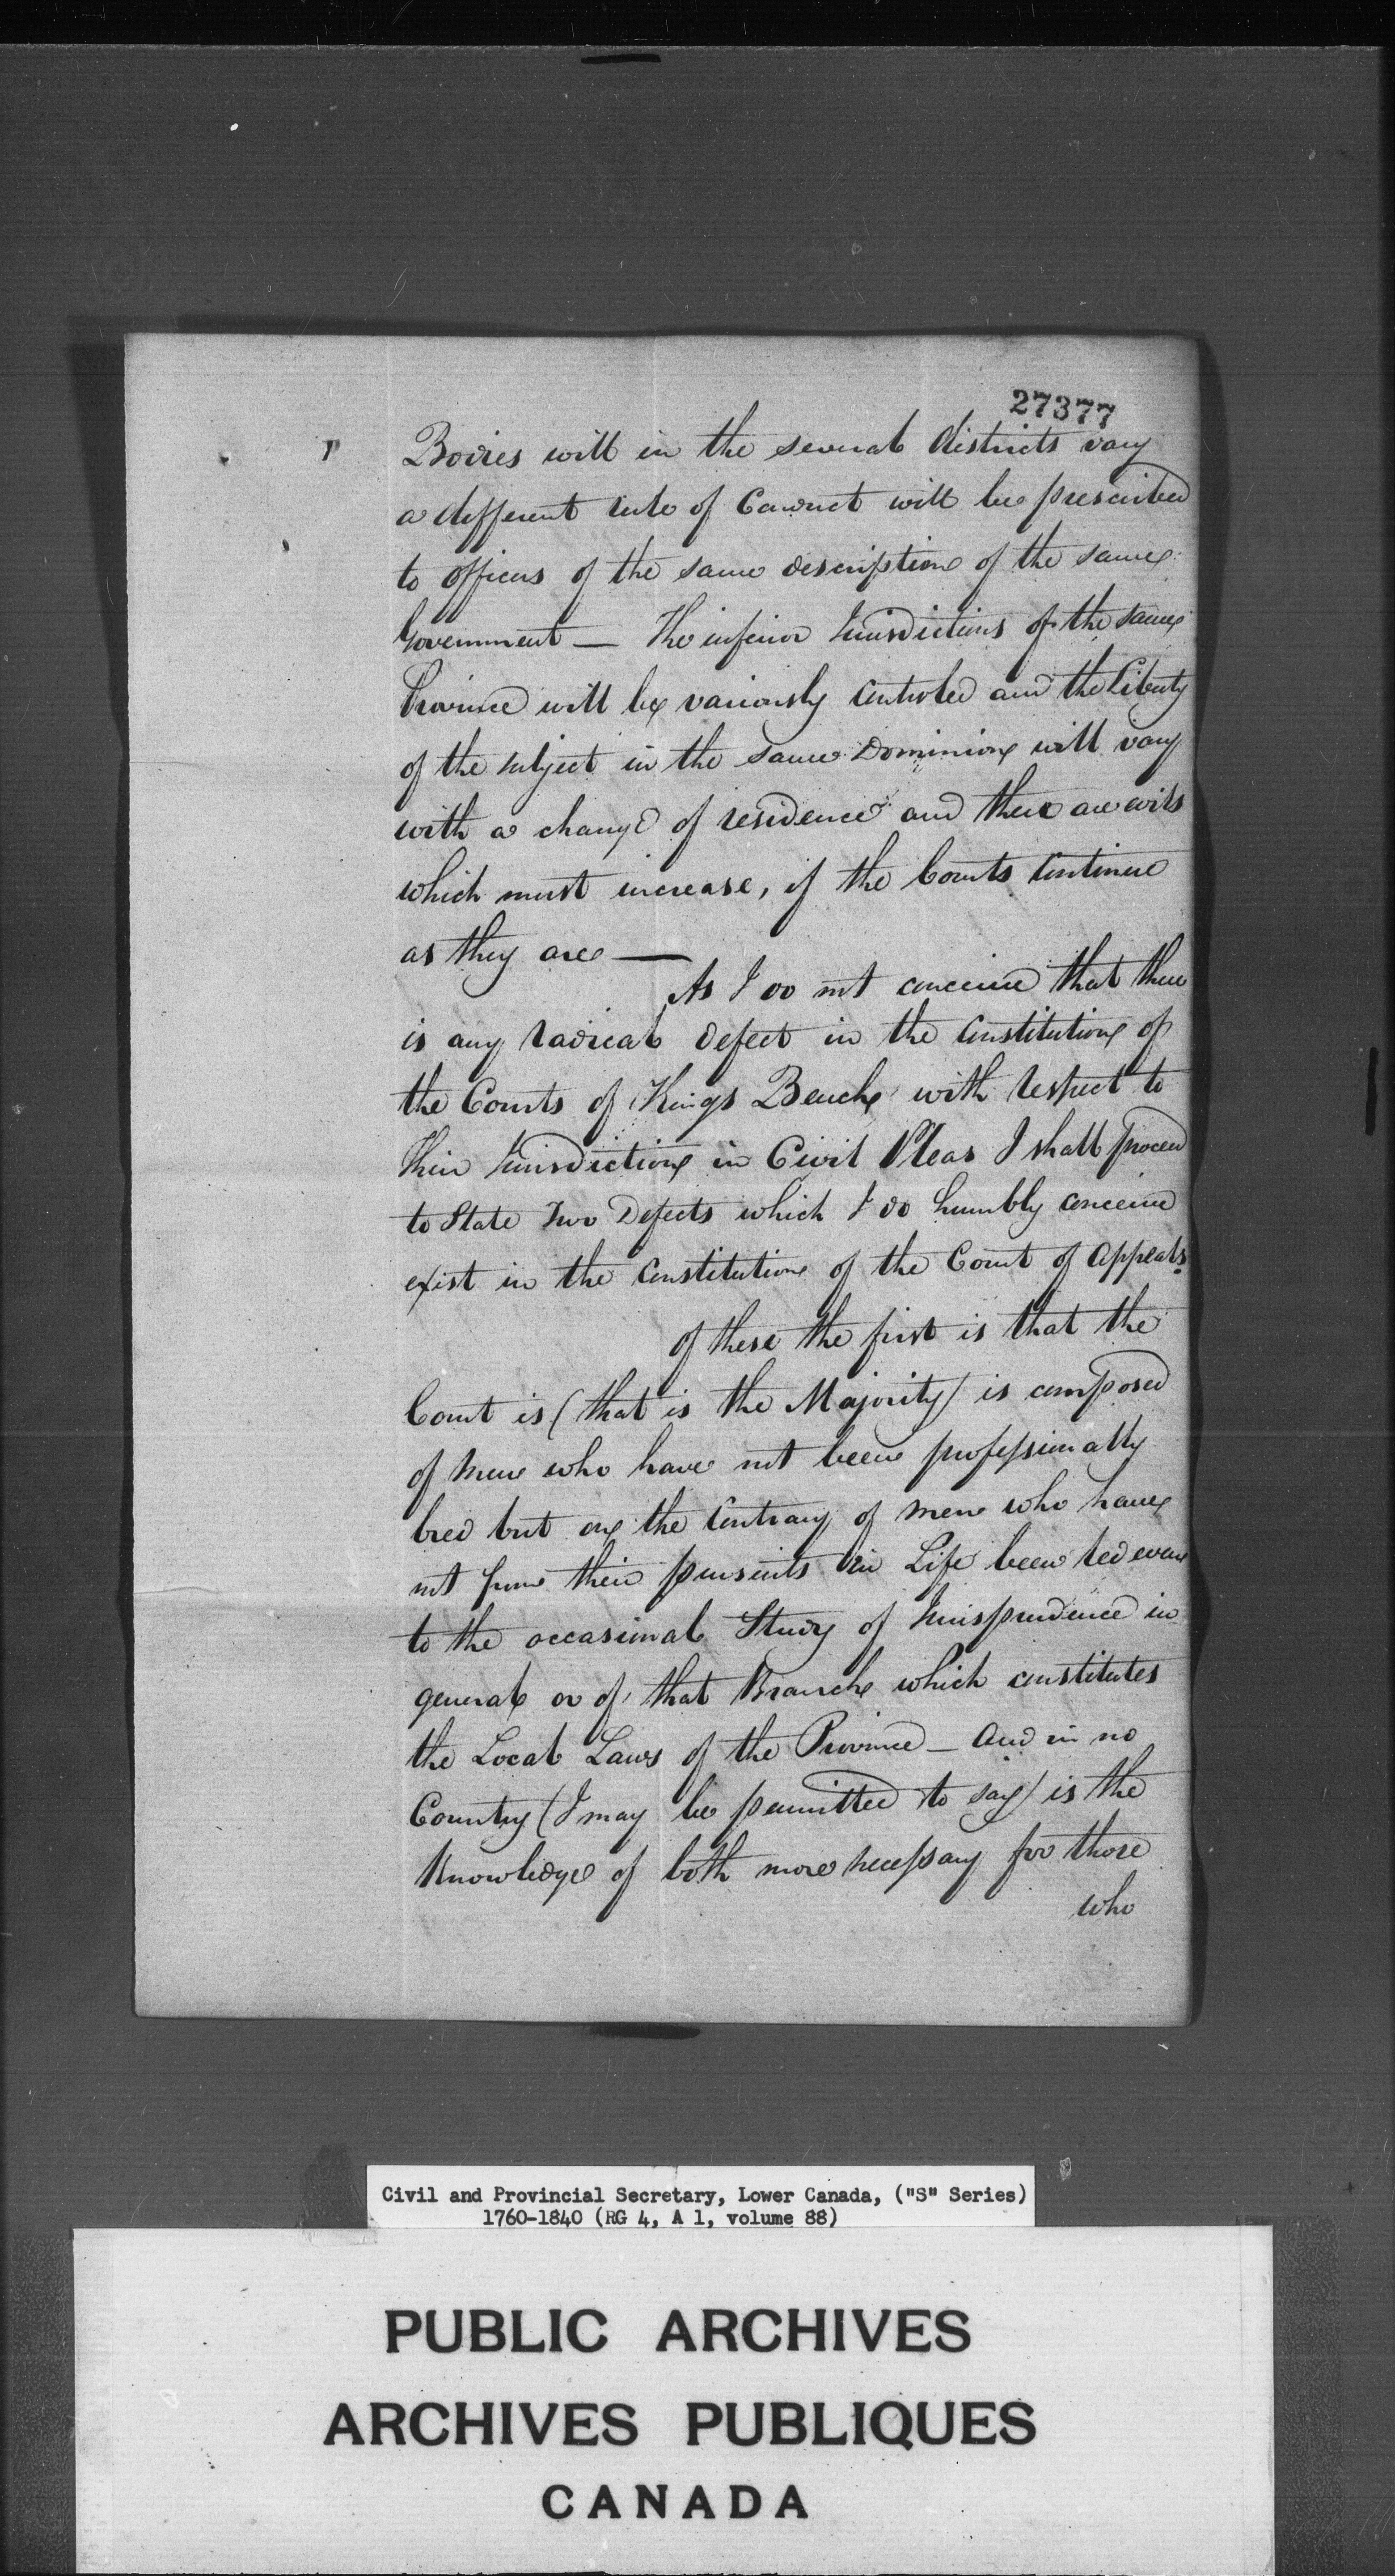 27377
Bodies will in the several districts vary
a different rule of Conduct will be prescribed
to officers of the same description of the same
Government — The inferior Jurisdictions of the same
Province will be variously Controled and the Liberty
of the subject in the same Dominion will vary
with a change of residence and these are evils
which must increase, if the Courts Continue
as they are —
As I do not conceive that there
is any radical defect in the Constitution of
the Courts of Kings Bench with respect to
their Jurisdiction in Civil Pleas I shall proceed
to State Two Defects which I do humbly conceive
exist in the Constitution of the Court of Appeals.
of these the first is that the
Court is (that is the Majority) is composed
of Men who have not been professionally
bred but on the Contrary of Men who have
not from their pursuits in Life been led even
to the occasional Study of Jurisprudence in
general or of that Branch which constitutes
the Local Laws of the Province — And in no
Country (I may be permitted to say) is the
Knowledge of both more necessary for those
who
Civil and Provincial Secretary, Lower Canada, ("S" Series)
1760-1840 (RG 4, A 1, volume 88)
PUBLIC ARCHIVES
ARCHIVES PUBLIQUES
CANADA